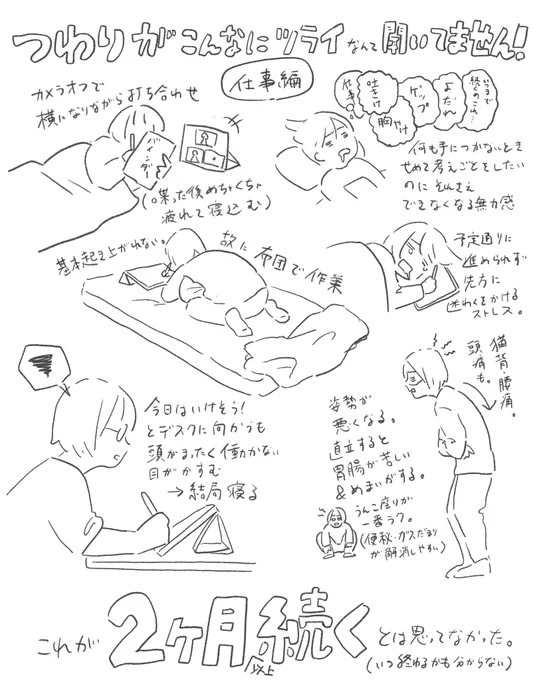 つわりがこんなにツライなんて聞いてません!
仕事編
カメラオフで
横になりながら打ち合わせ
バインダー
(喋った後めちゃくちゃ
疲れて寝込む)
いつまで
続くのこれ…
よだれ
ゲップ
胸やけ
吐きけ
仕事…
何も手につかないとき
せめて考えごとをしたい
のにそんさえ
できなくなる無力感
基本起き上がれない。
故に布団で作業
予定通りに
進められず
先方に
迷わくをかける
ストレス。
今日はいけそう!
とデスクに向かうも
頭がまったく働かない
目がかすむ
→結局寝る
猫背・腰痛。
頭痛も。
姿勢が
悪くなる。
直立すると
胃腸が苦しい
&めまいがする。
うんこ座りが
一番ラク。
(便秘・ガスだまり
が解消しやすい)
これが2ヶ月以上続くとは思ってなかった。
(いつ終わるかも分からない)